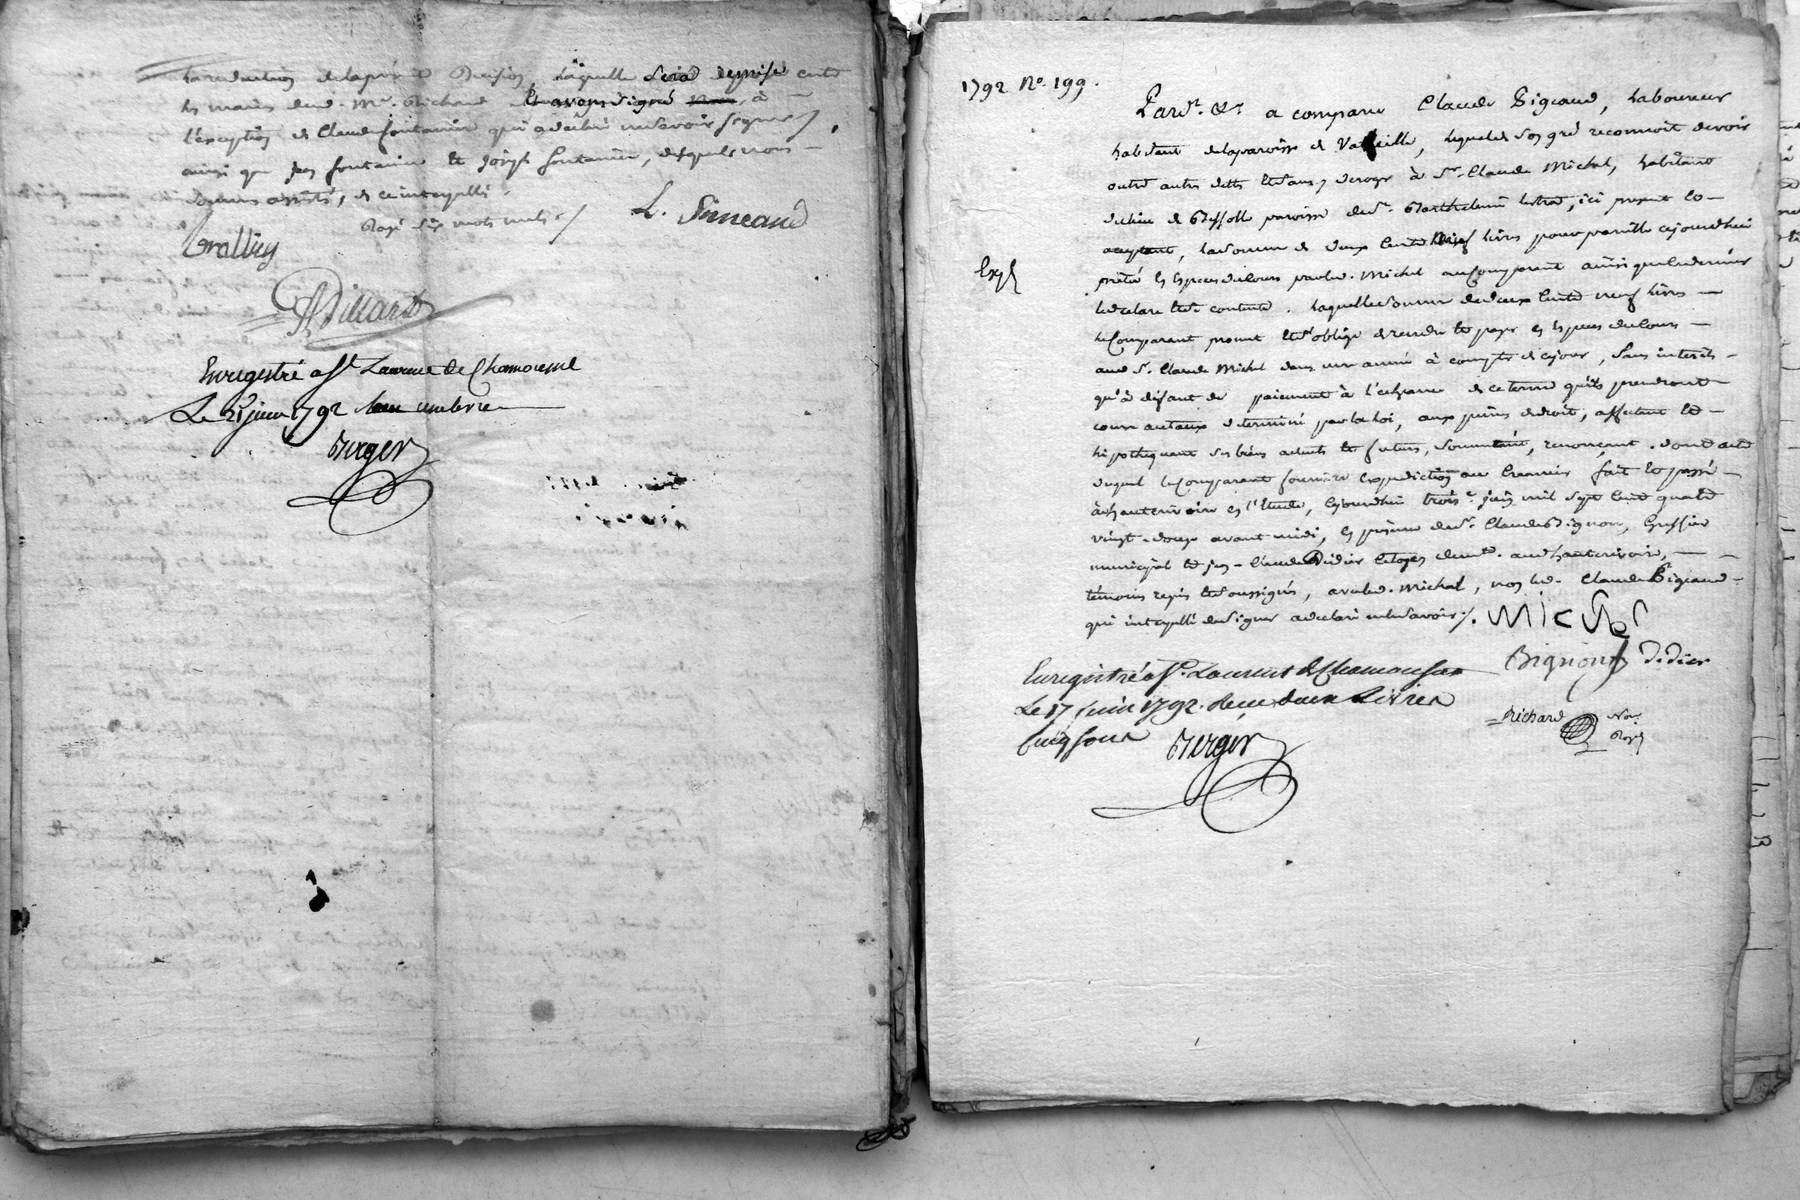 la rédaction de la présente Décision, laquelle sera remise entre
les mains dud. Me. Richard Et avons signé à
l'exception de Claude fontanier qui a déclaré ne savoir signer /.
ainsi que fontanier et Joseph fontanier, desquels nous
sommes assistés, de ce interpellé.
Rayé six mots nuls ./ L. Simeand
Gralliey
ABillard
Enregistré a St. Laurent de Chamousset
Le 21 juin 1792
Berger
1792 No. 199.
Pard.t &a. a comparu Claude Pigeaud, laboureur
habitant de la paroisse de Valleille, lequel de son gré reconnoit devoir
outre autres dettes et sans y deroger à Sr. Claude Michel, habitant
du lieu de Bessolle paroisse de St. Barthelemi lestra, ici present et
acceptant, la somme de deux cents neuf livres pour pareille cejourdhui
prêtée en especes de cours par led. Michel au Comparant ainsi que ce dernier
le declare et s'en contente. laquelle somme de deux cents neuf livres
le Comparant promet et s'oblige de rendre et payer en especes de cours
aud Sr. Claude Michel dans une année à compter de ce jour, sans interets
qu'à défaut de paiement à l'echeance de ce terme qu'ils prendront
cours au taux determiné par la loi, aux peines de droit, affectant et
hipothequant ses biens actuels et futurs, soumettant, renonçant. dont acte
duquel le Comparant fournira expedition au Creancier, fait et passé
à hauterivoire en l'Etude, cejourdhui trois e. juin mil sept cent quatre
vingt-douze avant midi, en presence de Sr. Claude Bignon, Greffier
municipal et jn-Claude Didier Citoyen demt. aud hauterivoire,
témoins requis et soussignés, avec led. Michel, non led. Claude Pigeaud
qui interpellé de signer a declaré ne le savoir ./.
Exp
Michel
Bignon Didier
Richard No.
Roy.
Enregistré a St. Laurent de Chamousset
Le 17 Juin 1792. Reçu deux Livres
Cinq sous Berger